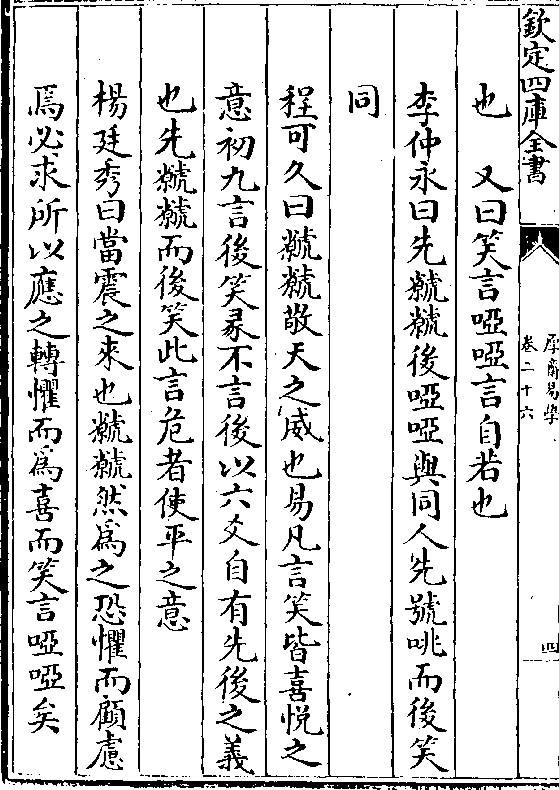 欽定四庫全書
厚齋易學
卷二十六
四
也　又曰笑言啞啞言自若也
李仲永曰先虩虩後啞啞與同人先號咷而後笑
同
程可久曰虩虩敬天之威也易凡言笑皆喜悅之
意初九言後笑彖不言後以六爻自有先後之義
也先虩虩而後笑此言危者使平之意
楊廷秀曰當震之來也虩虩然為之恐懼而顧慮
焉必求所以應之轉懼而為喜而笑言啞啞矣